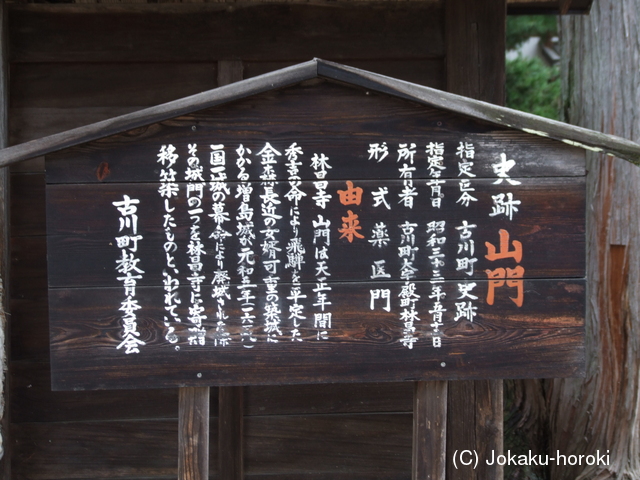 史跡 山門
指定区分 古川町史跡
指定年月日 昭和三十三年五月十一日
所有者 古川町大字殿町林昌寺
形式 薬医門
由来
林昌寺山門は天正年間に
秀吉の命により飛騨を平定した
金森長近の女婿可重の築城に
かかる増島城が元和元年(一六一五)
一国一城の幕命により廃城された際
その城門の一つを林昌寺に寄進
移築したものと、いわれている。
古川町教育委員会
(C) Jokaku-horoki